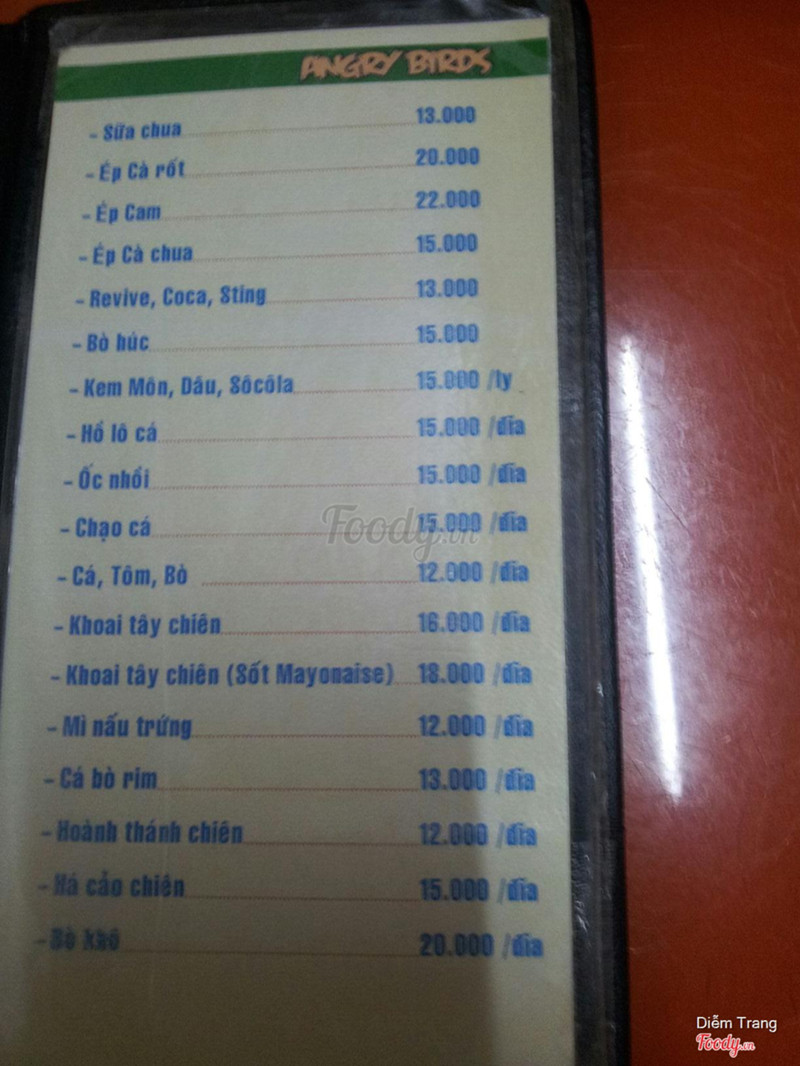 ANGRY BIRDS
- Sữa chua 13.000
- Ép Cà rốt 20.000
- Ép Cam 22.000
- Ép Cà chua 15.000
- Revive, Coca, Sting 13.000
- Bò húc 15.000
- Kem Môn, Dâu, Sôcôla 15.000 /ly
- Hồ lô cá 15.000 /dĩa
- Ốc nhồi 15.000 /dĩa
- Chạo cá 15.000 /dĩa
- Cá, Tôm, Bò 12.000 /dĩa
- Khoai tây chiên 16.000 /dĩa
- Khoai tây chiên (Sốt Mayonaise) 18.000 /dĩa
- Mì nấu trứng 12.000 /dĩa
- Cá bò rim 13.000 /dĩa
- Hoành thánh chiên 12.000 /dĩa
- Há cảo chiên 15.000 /dĩa
- Bò khô 20.000 /dĩa
Foody.vn
Diễm Trang
Foody.vn